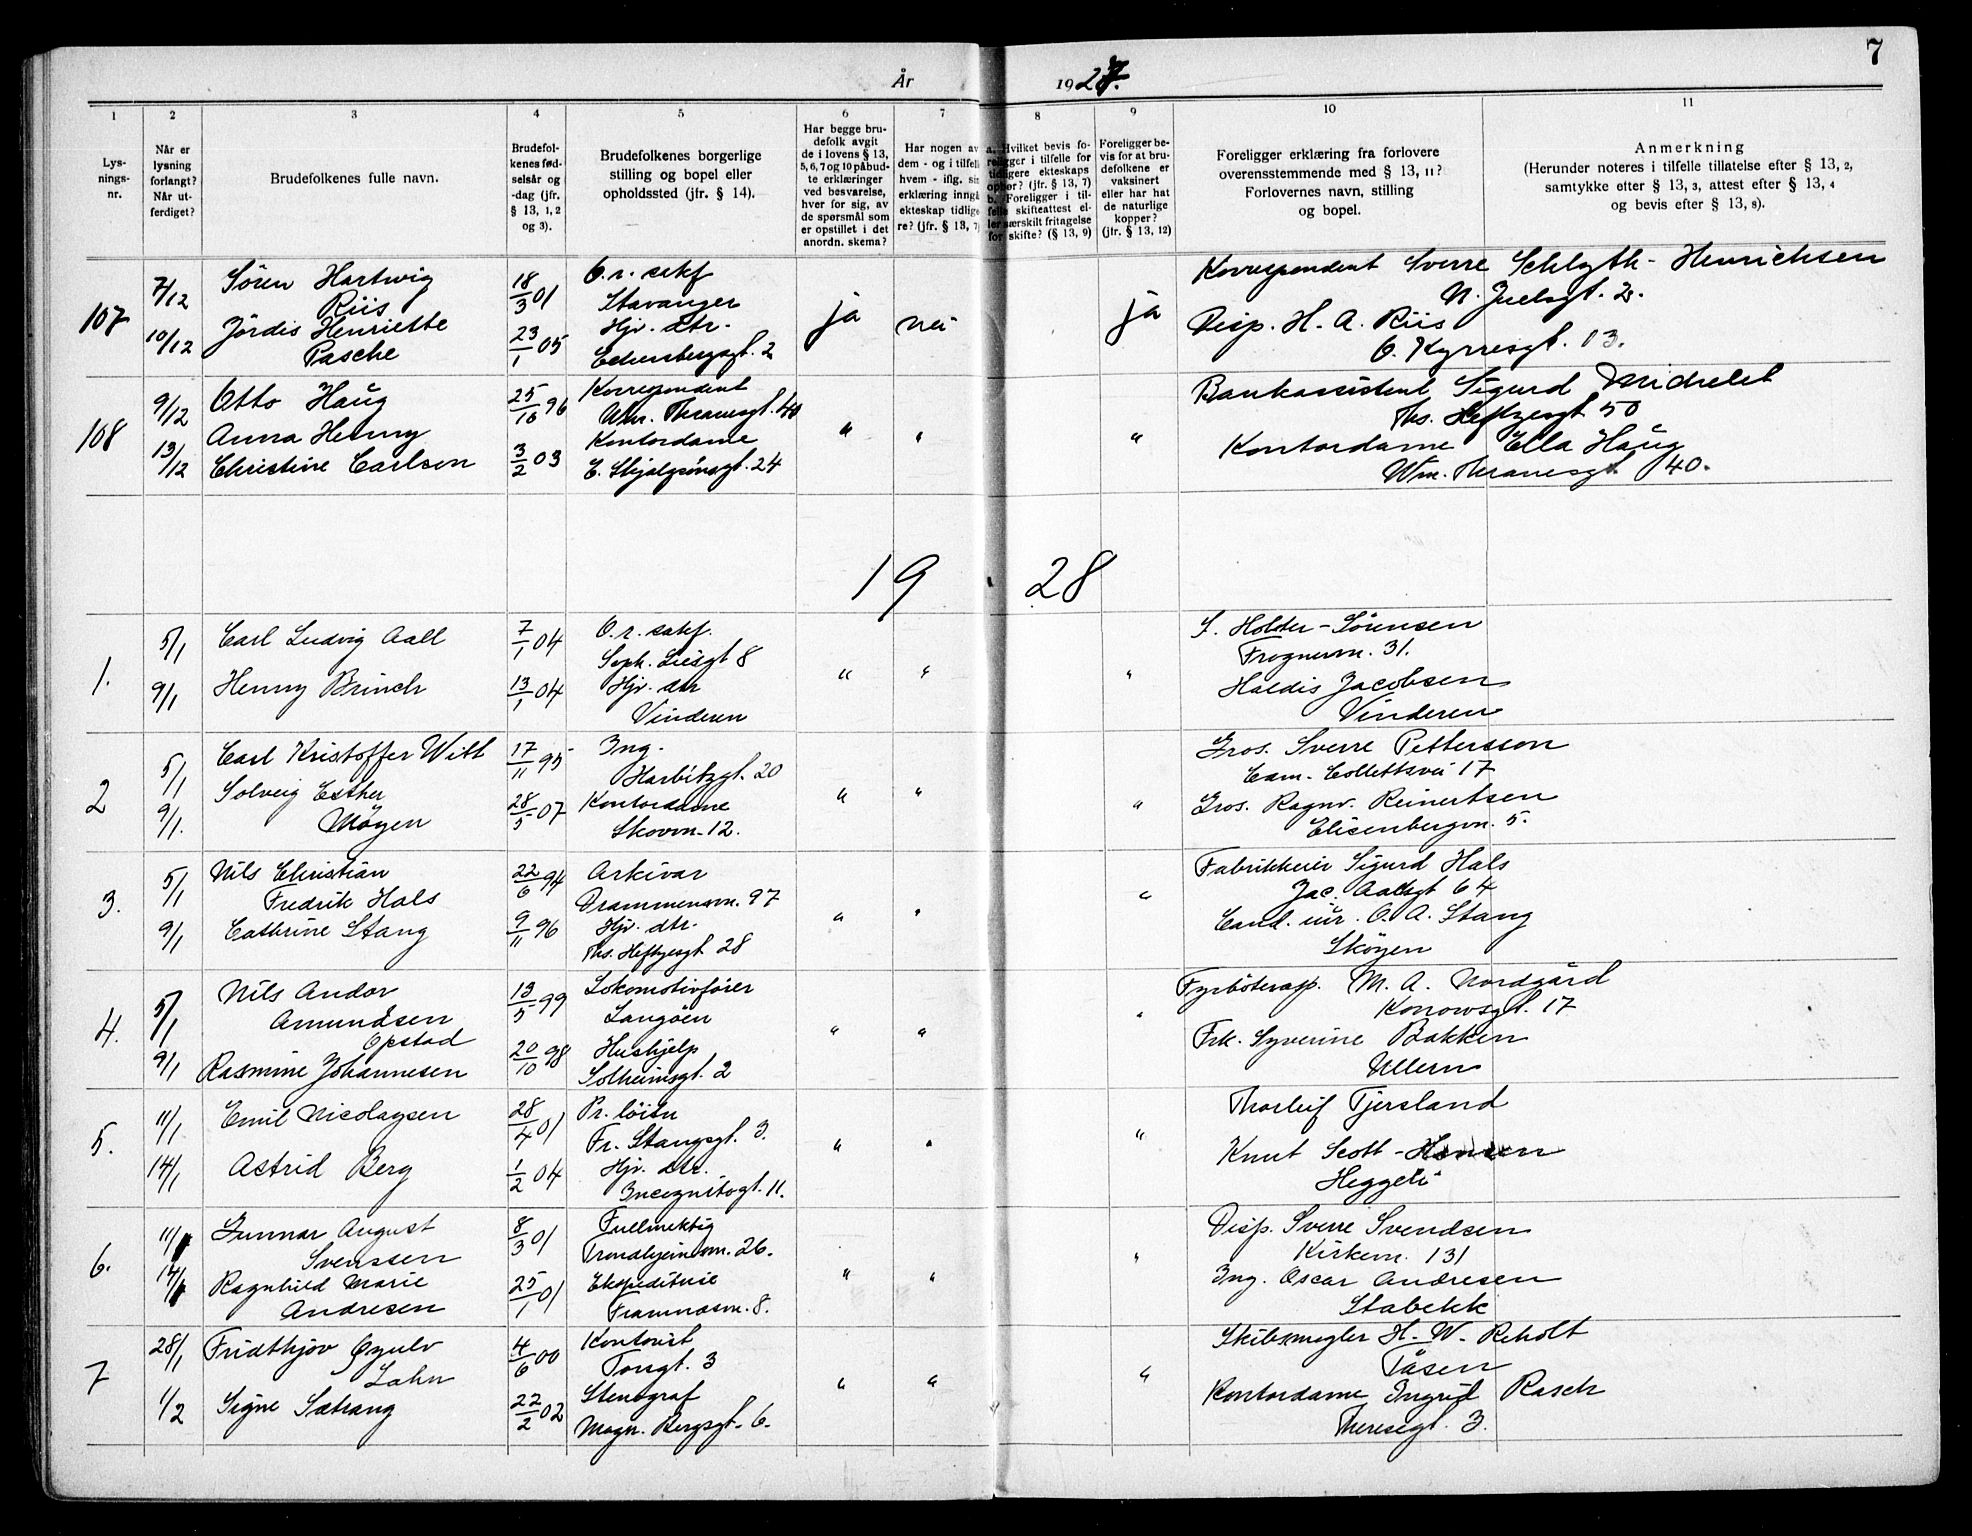 7
År 1927.
1 2 3 4 5 6 7 8 9 10 11
Lys-
nings-
nr.
Når er
lysning
forlangt?
Når ut-
ferdiget?
Brudefolkenes fulle navn.
Brudefol-
kenes fød-
selsår og
-dag (jfr.
§ 13, 1, 2
og 3).
Brudefolkenes borgerlige
stilling og bopel eller
opholdssted (jfr. § 14).
Har begge bru-
defolk avgit
de i lovens § 13,
5, 6, 7 og 10 påbud-
te erklæringer
ved besvarelse,
hver for sig, av
de spørsmål som
er opstillet i det
anordn. skema?
Har nogen av
dem - og i tilfelle
hvem - iflg. si
erklæring inngå
ekteskap tidlige
re? (jfr. § 13, 7
a. Hvilket bevis fo-
religger i tilfelle for
tidligere ekteskaps
ophør? (jfr. § 13, 7)
b. Foreligger i til-
felle skifteattest el-
ler særskilt fritagelse
for skifte? (§ 13, 9)
Foreligger be-
vis for at bru-
defolkene er
vaksinert
eller har hat
de naturlige
kopper?
(jfr. § 13, 12)
Foreligger erklæring fra forlovere
overensstemmende med § 13, 11?
Forlovernes navn, stilling
og bopel.
Anmerkning
(Herunder noteres i tilfelle tillatelse efter § 13, 2,
samtykke efter § 13, 3, attest efter § 13, 4
og bevis efter § 13, 8).
107
7/12
10/12
Sören Hartwig
Riis
Jördis Henriette
Pasche
18/3 01
23/1 05
O.r. sakf
Stavanger
Hjv. dtr.
Eckersbergsgt. 2
ja
nei
ja
Korrespondent Sverre Schlyth-Henrichsen
N. Juelsgt. 2.
Disp. H. A. Riis
O. Kyrresgt. 13.
108
9/12
13/12
Otto Haug
Anna Henny
Christine Carlsen
25/10 96
3/2 03
Korrespondent
Wm. Thranesgt. 40
Kontordame
E. Skjalgsönsgt. 24
" " "
Bankassistent Sigurd Michelet
Ths. Heftyesgt 50
Kontordame Ella Haug
Wm. Thranesgt. 40.
19 28
1.
5/1
9/1
Carl Ludvig Aall
Henny Brinch
7/1 04
13/1 04
O.r. sakf.
Soph. Liesgt 8
Hjv. dtr
Vinderen
" " "
S. Holter-Sörensen
Frognerm. 31.
Haldis Jacobsen
Vinderen
2
5/1
9/1.
Carl Kristoffer Witt
Solveig Esther
Möyen
17/11 95
28/5 07
Ing.
Harbitzgt. 20
Kontordame
Skovm. 12.
" " "
Gros. Sverre Pettersson
Cam. Collettsvei 17
Gros. Ragnv. Reinertsen
Elisenbergvn. 5.
3.
5/1
9/1
Nils Christian
Fredrik Hals
Cathrine Stang
22/6 94
9/11 96
Arkivar
Drammensvn. 97
Hjv. dtr.
Ths. Heftyesgt 28
" " "
Fabrikkeier Sigurd Hals
Jac. Aallsgt 64
Cand. jur. O. A. Stang
Sköyen
4.
5/1
9/1
Nils Andor
Amundsen
Opstad
Rasmine Johannesen
13/5 99
20/10 98
Lokomotivförer
Langöen
Hushjelp
Solheimsgt. 2
" " "
Fyrböterasp. M. A. Nordgård
Konowsgt. 17
Frk. Syverine Bakken
Ullern
5.
11/1
14/1
Emil Nicolaysen
Astrid Berg
28/4 01
1/2 04
Pr. löitn
Fr. Stangsgt. 3.
Hjv. dtr.
Incognitogt. 11.
" " "
Thorleif Tjersland
Knut Scott-Hansen
Heggeli
6.
11/1
14/1
Gunnar August
Svenssen
Ragnhild Marie
Andresen
8/3 01
25/1 01
Fullmektig
Trondhjemsvn. 26.
Ekspeditrise
Framnæsvn. 8.
" " "
Disp. Sverre Svendsen
Kirkevn. 131
Ing. Oscar Andresen
Stabekk
7
28/1
1/2
Fridthjov Öyulv
Lahn
Signe Sætrang
4/6 00
22/2 02
Kontorist
Torsgt. 3
Stenograf
Magn. Bergsgt. 6.
" " "
Skibsmegler H. W. Reholt
Tåsen
Kontordame Ingrid Rasch
Theresegt. 3.